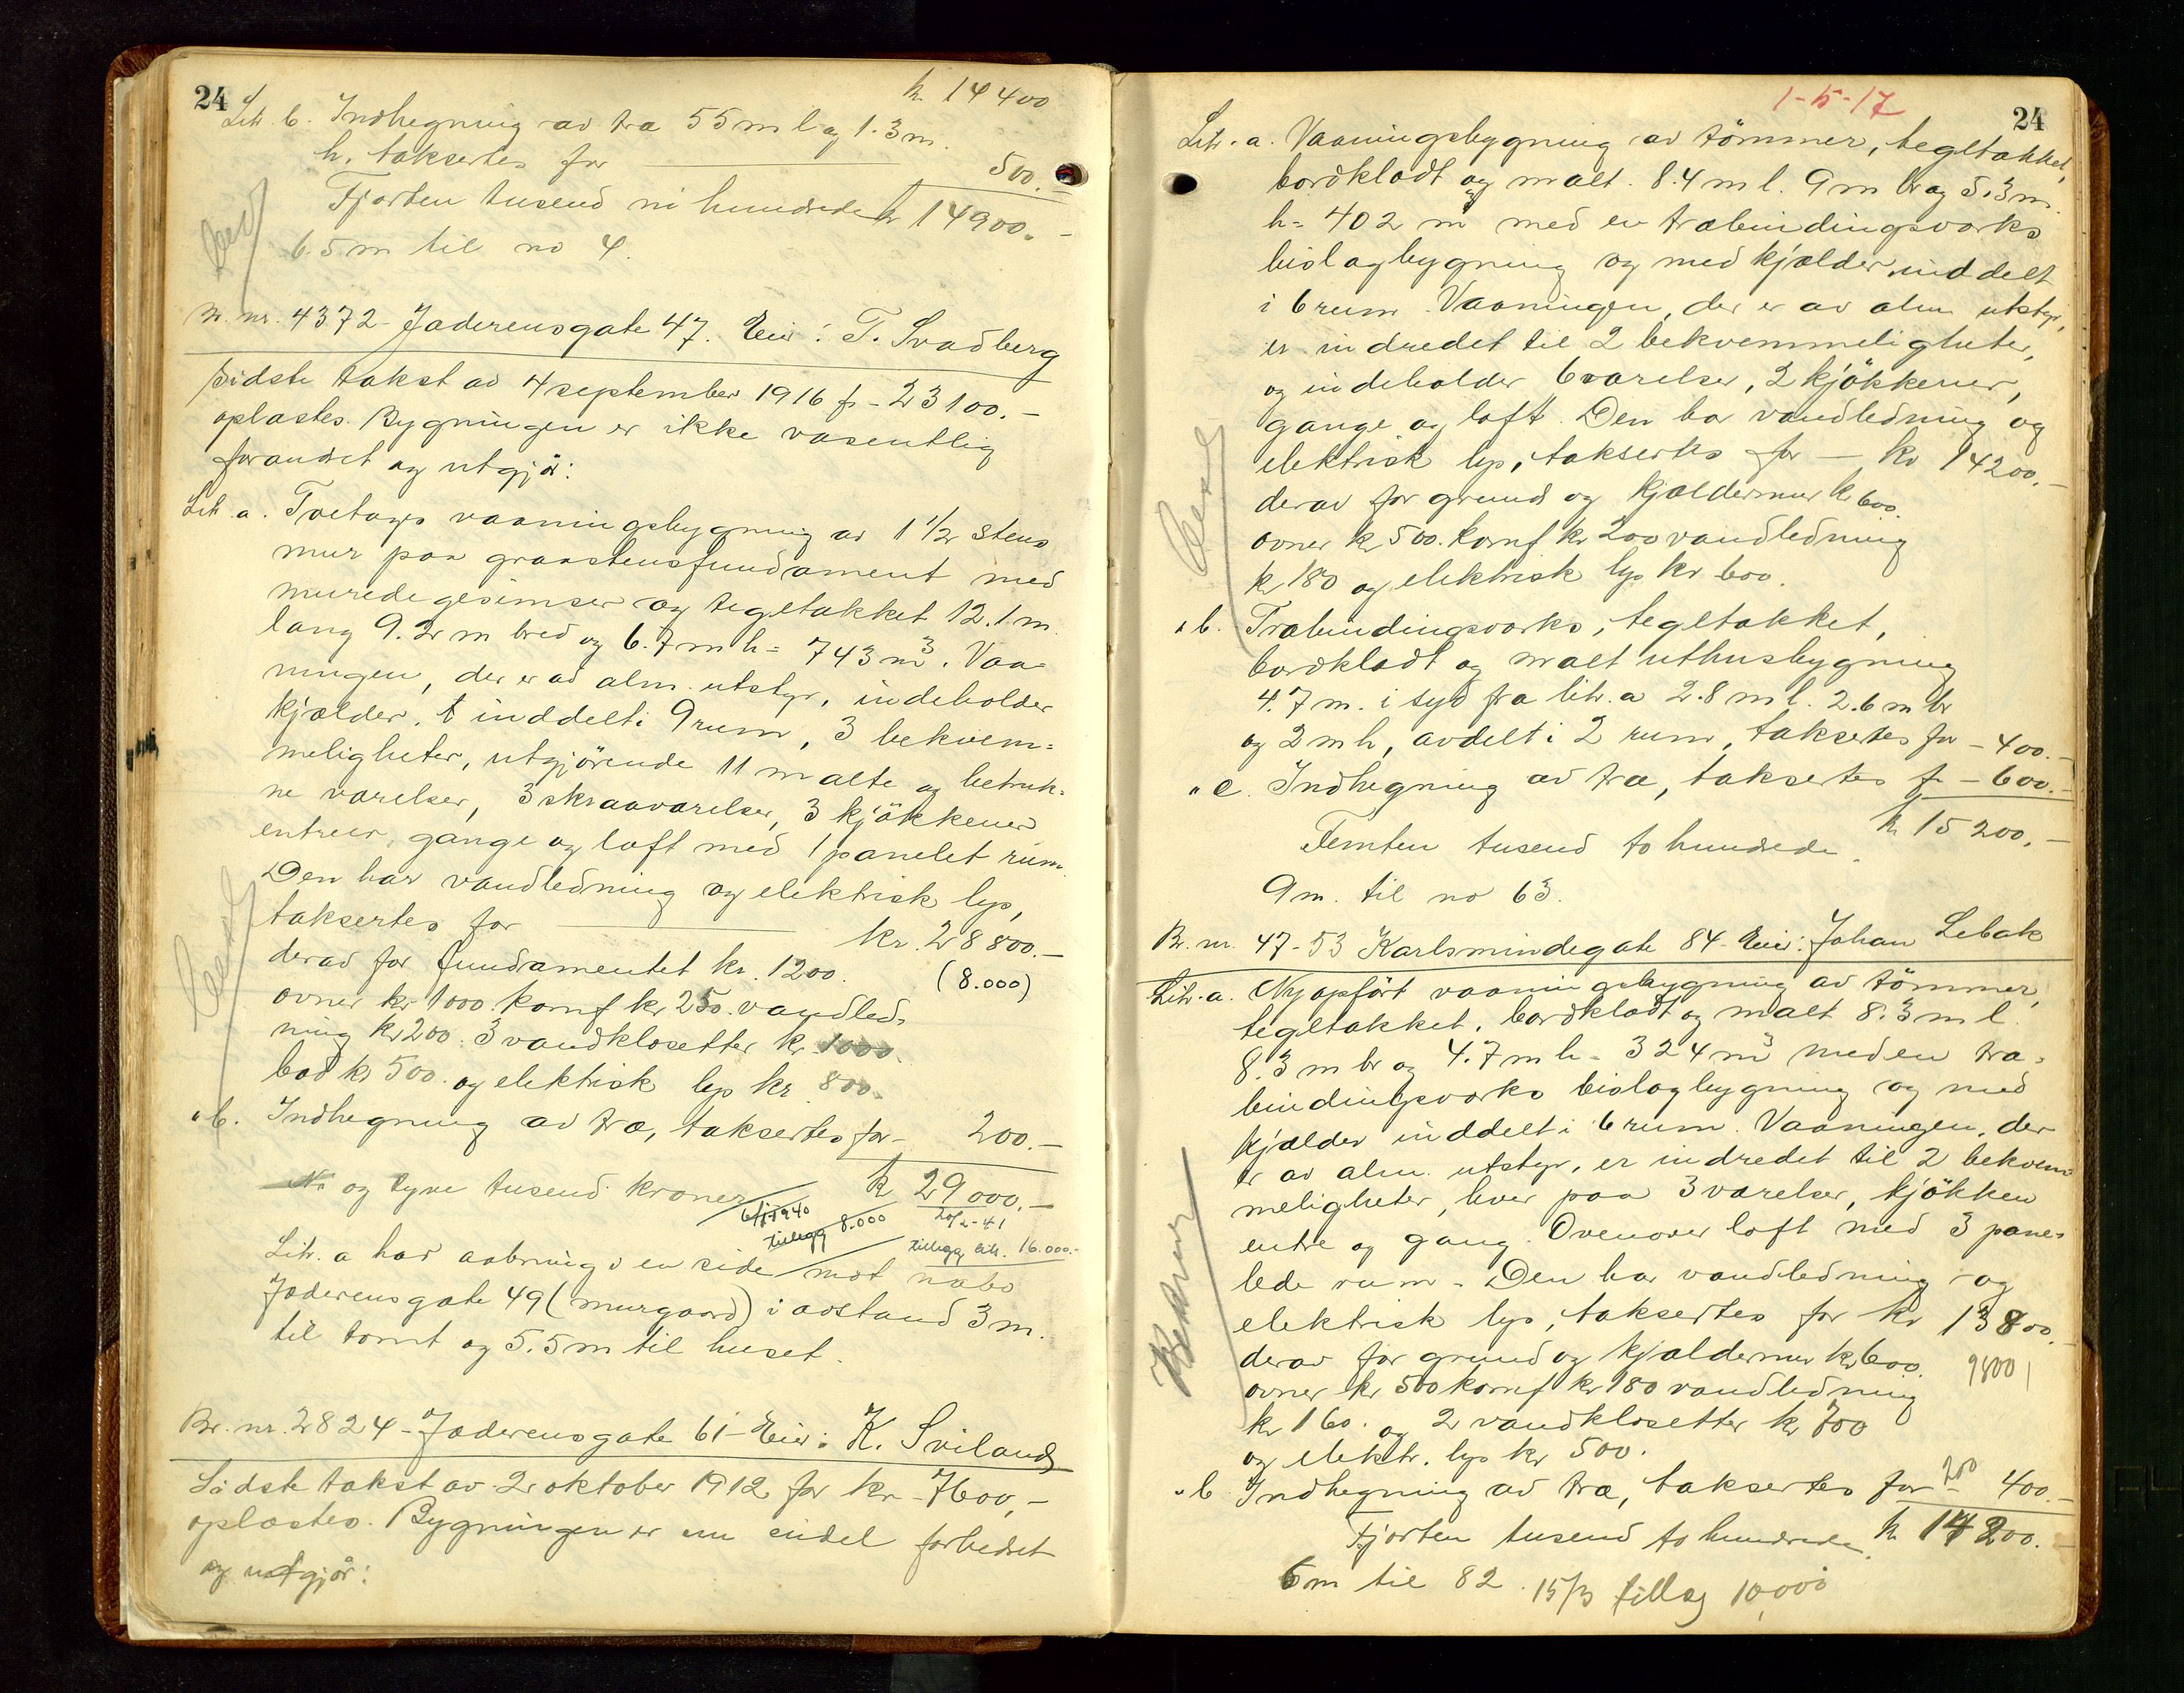 24
kr. 14400
Litr. b. Indhegning av træ 55 m l og 1.3 m.
h. taksertes for 500.-
Fjorten tusend ni hundrede kr 14900.-
6.5 m til no 4.
Br. nr. 4372 - Jæderensgate 47. Eier: T. Svadberg
Sidste takst av 4 september 1916 fr - 23100.-
oplæstes. Bygningen er ikke væsentlig
forandret og utgjör:
Litr. a. Toetages vaaningsbygning av 1 1/2 stens
mur paa graastensfundament med
murede gesimser og tegltækket 12.1 m.
lang 9.2 m bred og 6.7 m h = 743 m³. Vaa-
ningen, der er av alm. utstyr, indeholder
kjælder, inddelt i 9 rum, 3 bekvem=
meligheter, utgjörende 11 malte og betruk=
ne værelser, 3 skraaværelser, 3 kjökkener
entreer, gange og loft med 1 panelet rum.
Den har vandledning og elektrisk lys,
taksertes for kr. 28800.-
derav for fundamentet kr. 1200. (8.000)
ovner kr 1000. komf kr 250. vandled=
ning kr 200. 3 vandklosetter kr 1000.
bad kr 500. og elektrisk lys kr 800.
" b. Indhegning av træ, taksertes for - 200.-
Ni og tyve tusend kroner kr 29000.-
6/1-1940 20/2-41
tillegg 8.000 tillegg litr. 16.000.-
Litr. a har aabning i en side mot nabo
Jæderensgate 49 (murgaard) i avstand 3 m.
til tomt og 5.5 m til huset.
Br. nr. 2824 - Jæderensgate 61 - Eier: K. Sviland
Sidste takst av 2 oktober 1912 for kr - 7600,-
oplæstes. Bygningen er nu endel forbedret
og utgjör:
1-5-17
24
Litr. a. Vaaningsbygning av tömmer, tegltækket,
bordklædt og malt. 8.4 m l. 9 m br og 5.3 m.
h = 402 m med en træbindingsverks
bislagbygning og med kjælder inddelt
i 6 rum. Vaaningen, der er av alm utstyr,
er indredet til 2 bekvemmeligheter,
og indeholder 6 værelser, 2 kjökkener,
gange og loft. Den har vandledning og
elektrisk lys, taksertes for - kr 14200.-
derav for grund og kjældermur kr 600.
ovner kr 500. komf kr 200 vandledning
kr 180 og elektrisk lys kr 600.
" b. Træbindingsverks, tegltækket,
bordklædt og malt uthusbygning
4.7 m. i syd fra litr. a 2.8 m l. 2.6 m br
og 2 m h, avdelt i 2 rum, taksertes for - 400.-
" c. Indhegning av træ, taksertes fr - 600.-
Femten tusend to hundrede. kr 15200.-
9 m. til no 63.
Br. nr. 47-53 Karlsmindegate 84 - Eier: Johan Lebak
Litr. a. Nyopfört vaaningsbygning av tömmer,
tegltækket, bordklædt og malt 8.3 m l.
8.3 m br og 4.7 m h = 324 m³ med en træ=
bindingsverks bislagbygning og med
kjælder inddelt i 6 rum. Vaaningen, der
er av alm. utstyr, er indredet til 2 bekvem=
meligheter, hver paa 3 værelser, kjökken
entre og gang. Ovenover loft med 3 pane=
lede rum. Den har vandledning og
elektrisk lys, taksertes for kr 13800.-
derav for grund og kjældermur kr 600. 9800
ovner kr 500 komf kr 180 vandledning
kr 160. og 2 vandklosetter kr 700
og elektr. lys kr 500.
" b Indhegning av træ, taksertes for - 200 400.-
Fjorten tusend to hundrede. kr 14200.-
6 m til 82. 15/3 tillæg 10,000